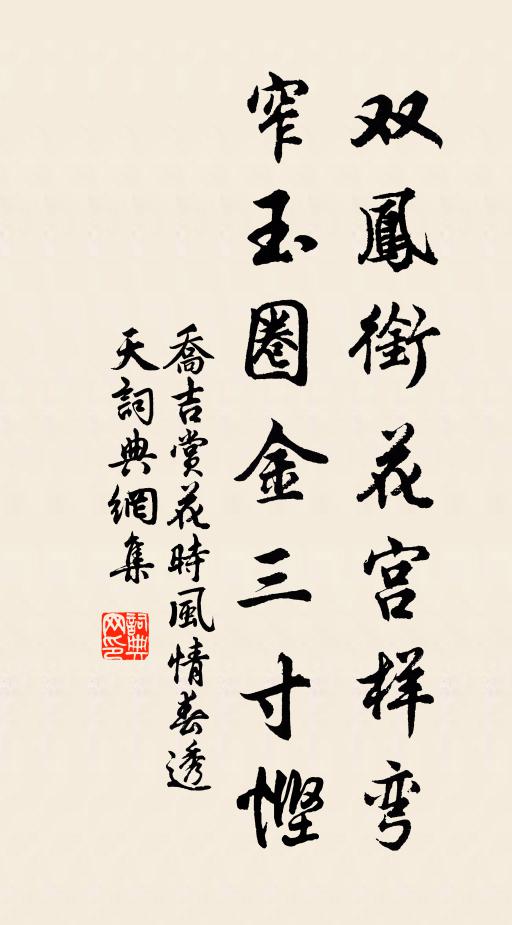 双鳳銜花宫样弯
窄玉圈金三寸慳
喬吉賞花時風情春透
天詞典網集
詞典网印